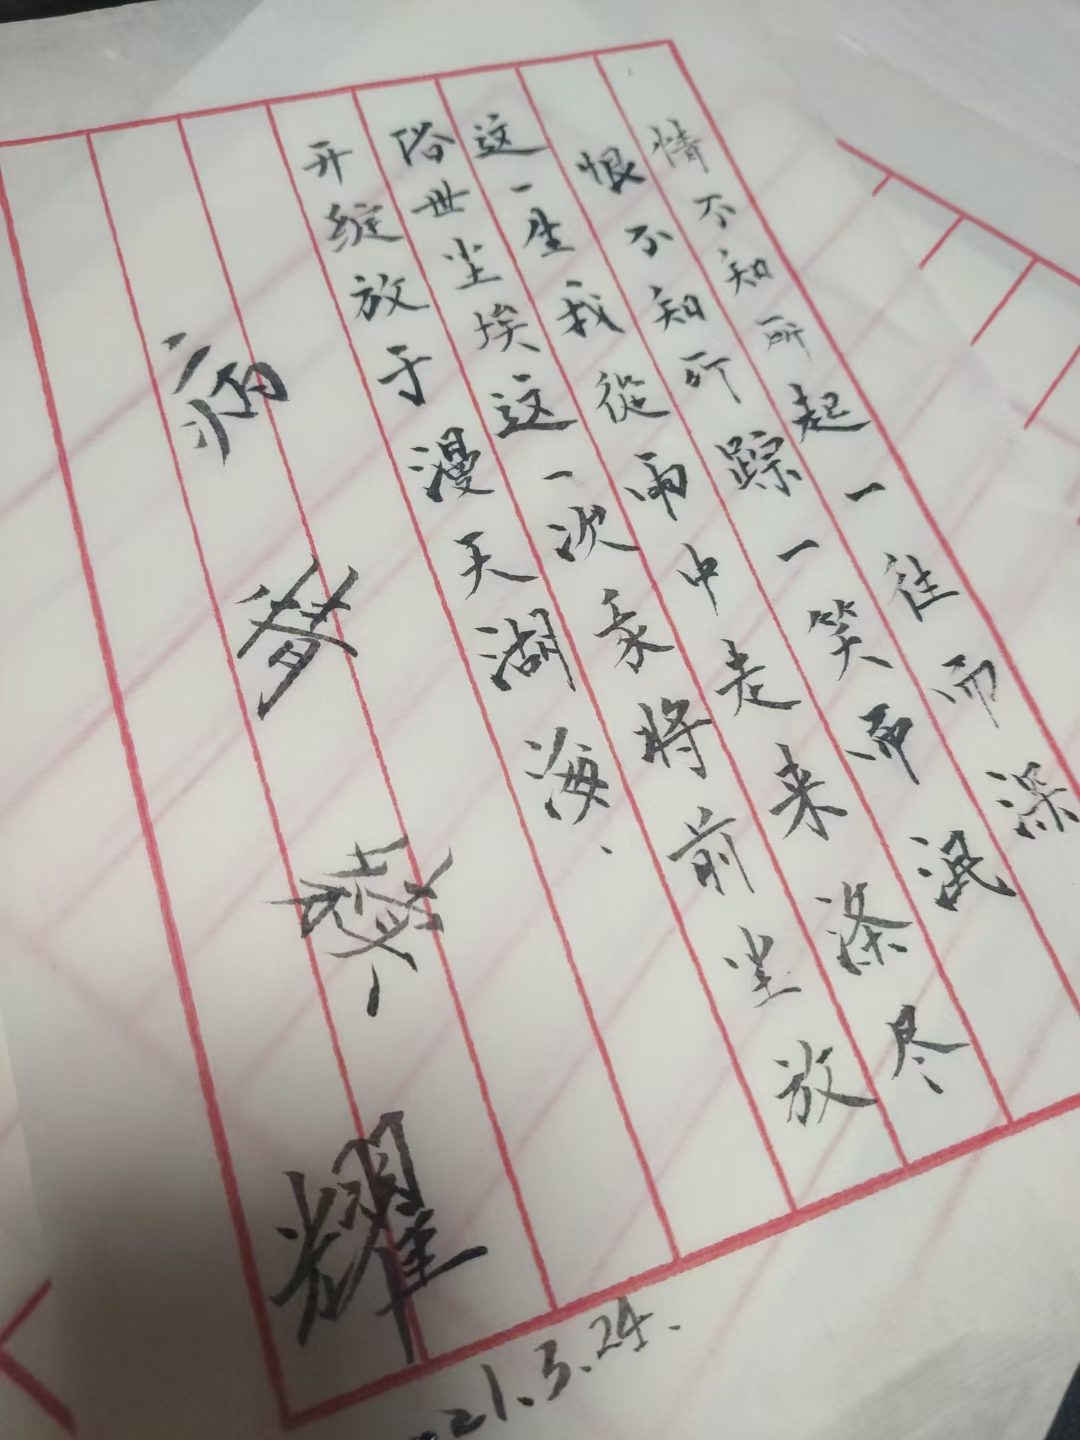 情不知所起一往而深
恨不知所踪一笑而泯
这一生我從雨中走来涤尽
俗世尘埃这一次将前尘放
开绽放于漫天湖海、
耀
21.3.24.